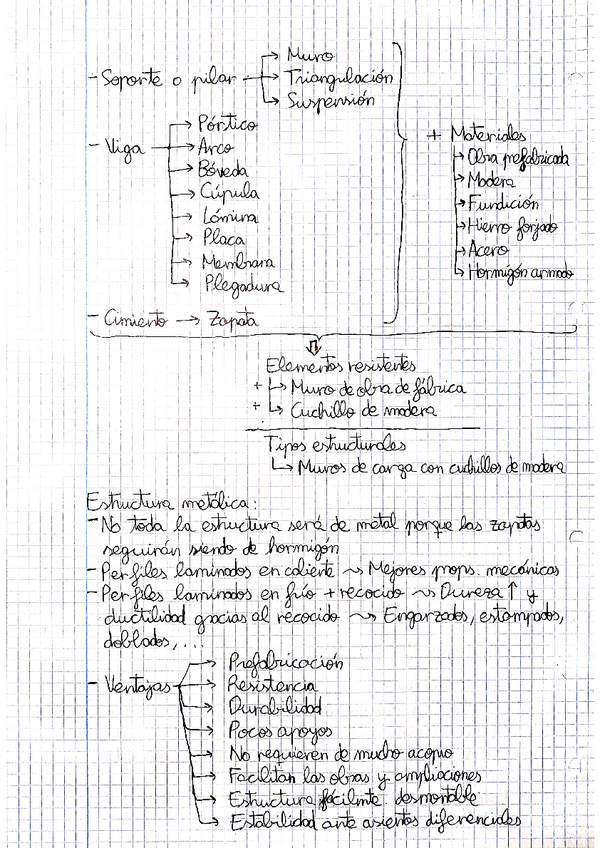 Muro
- Soporte o pilar → Triangulación
Suspensión
→ Pórtico
- Viga → Arco
→ Bóveda
→ Cúpula
→ Lámina
→ Placa
→ Membrana
→ Plegadura
- Cimiento → Zapata
+ Materiales
→ Obra prefabricada
→ Madera
→ Fundición
→ Hierro forjado
→ Acero
→ Hormigón armado
Elementos resistentes
+ → Muro de obra de fábrica
+ → Cuchillo de madera
Tipos estructurales
→ Muros de carga con cuchillos de madera
Estructura metálica:
- No toda la estructura será de metal porque las zapatas
seguirán siendo de hormigón
- Perfiles laminados en caliente ⇝ Mejores props. mecánicas
- Perfiles laminados en frío + recocido ⇝ Dureza ↑ y
ductilidad gracias al recocido ⇝ Engarzados, estampados,
doblados, ...
→ Prefabricación
- Ventajas → Resistencia
→ Durabilidad
→ Pocos apoyos
→ No requieren de mucho acopio
→ Facilitan las obras y ampliaciones
→ Estructura fácilmte desmontable
→ Estabilidad ante asientos diferenciales